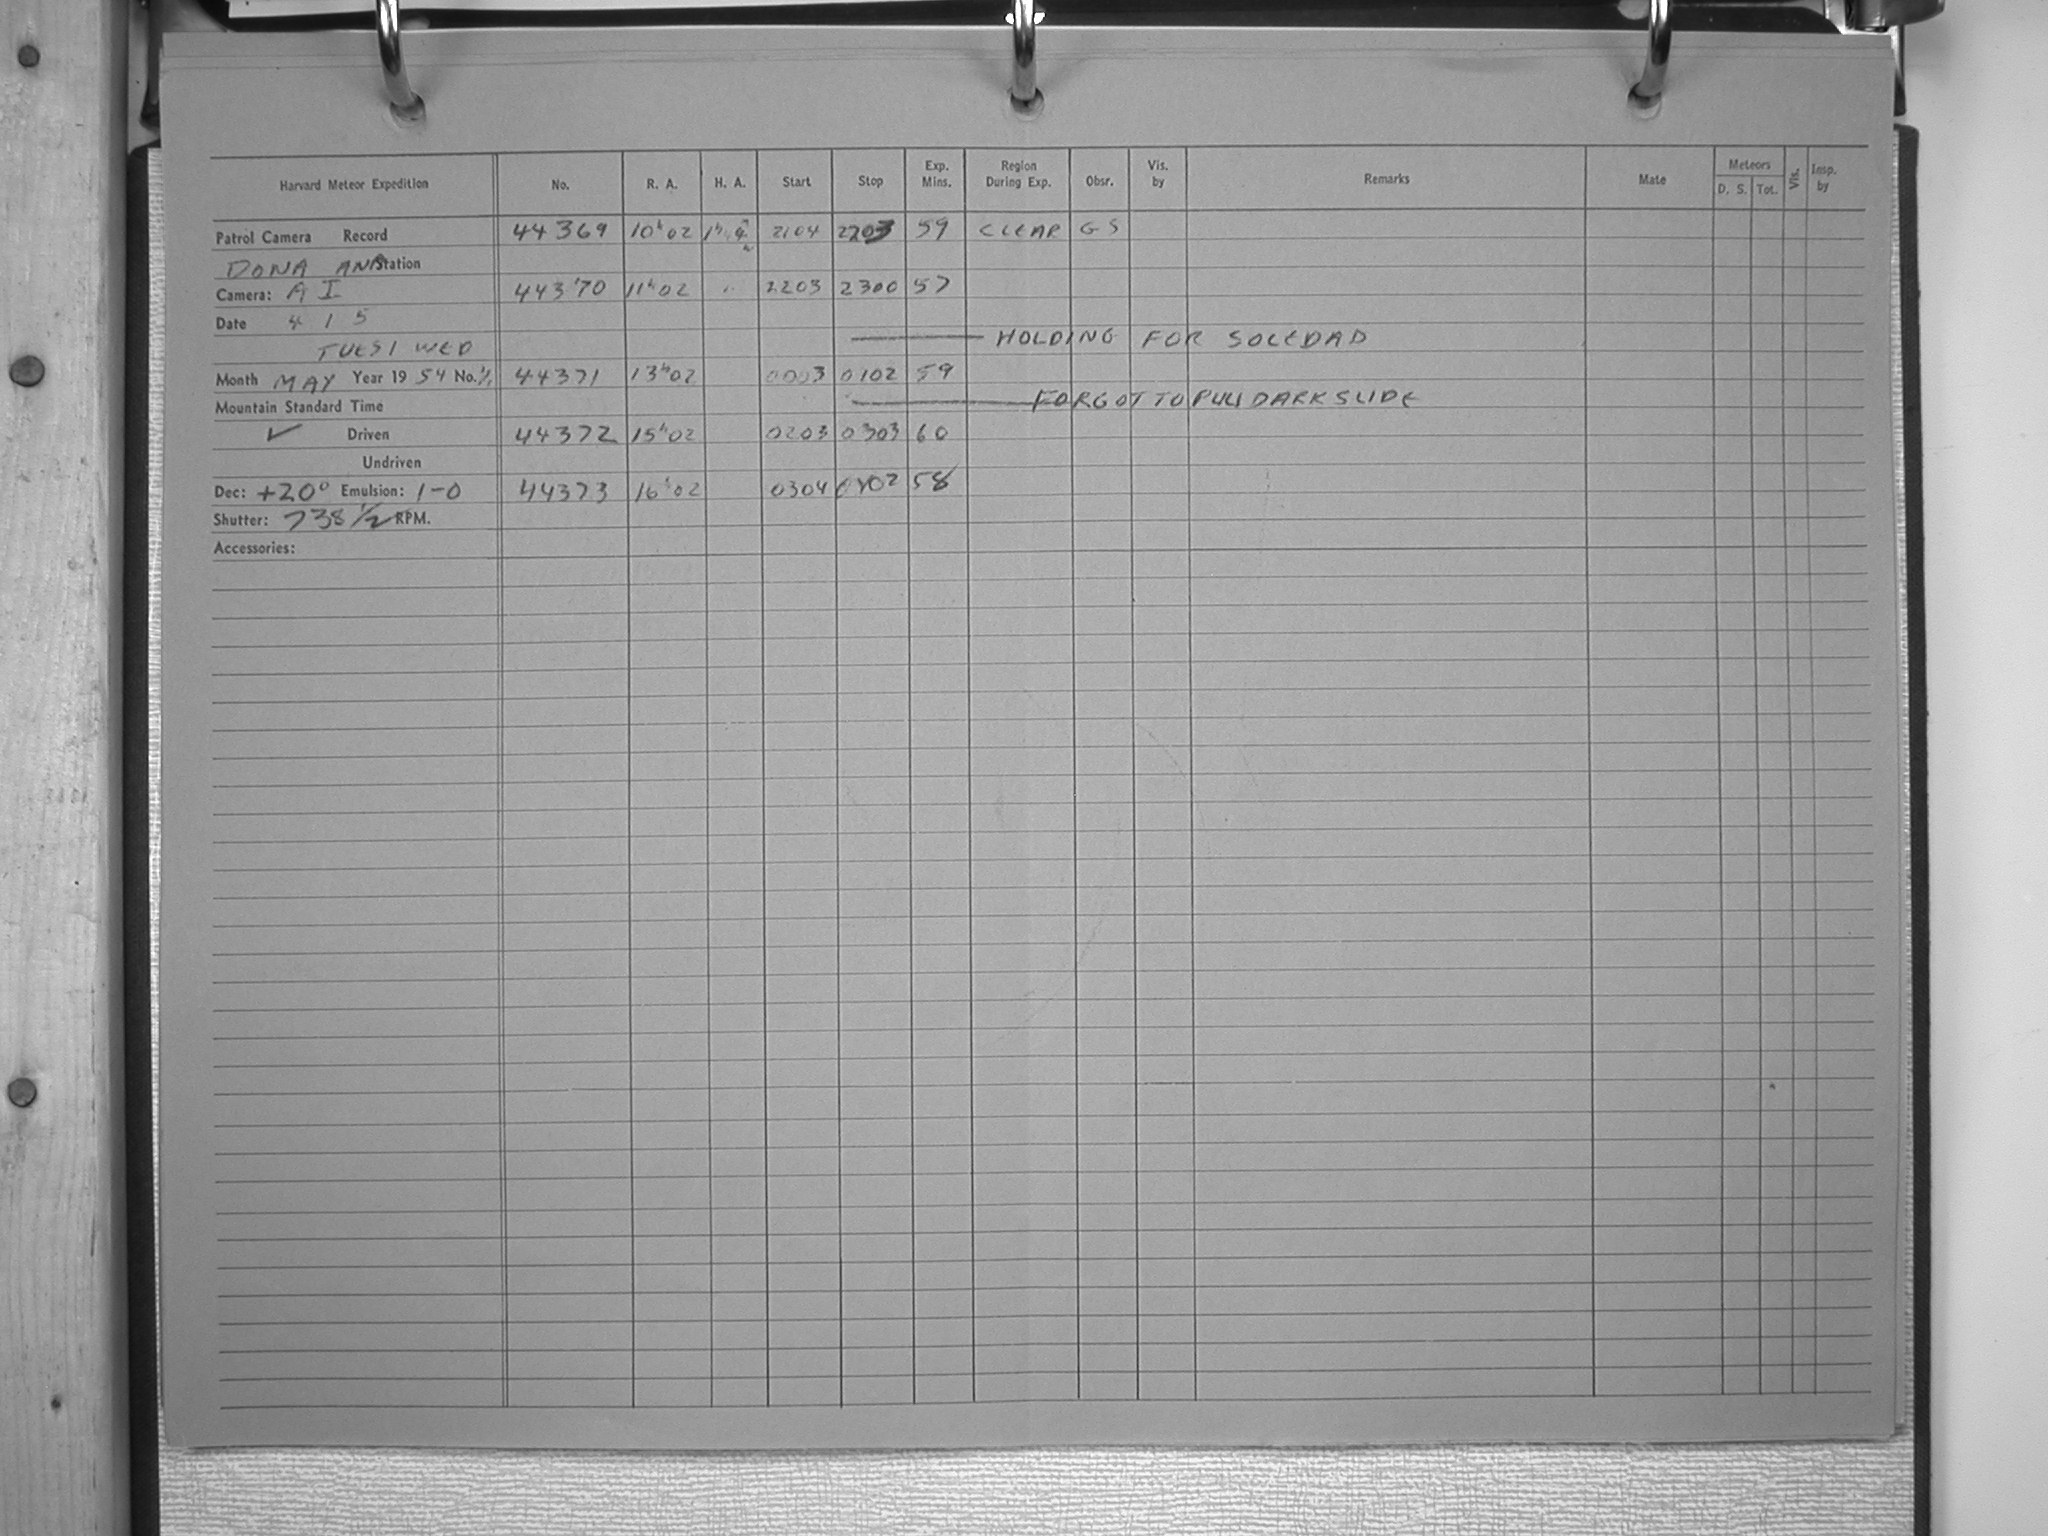 Harvard Meteor Expedition No. R. A. H. A. Start Stop Exp. Mins. Region During Exp. Obsr. Vis. by Remarks Mate Meteors D. S. Tot. Vis. Insp. by
Patrol Camera Record 44369 10h02 2104 2203 59 CLEAR GS
DONA ANA Station
Camera: A I 44370 11h02 " 2203 2300 57
Date 4 1 5
HOLDING FOR SOLEDAD
TUES1 WED
Month MAY Year 1954 No. 1/1 44371 13h02 0003 0102 59
Mountain Standard Time FORGOT TO PULL DARK SLIDE
✓ Driven 44372 15h02 0203 0303 60
Undriven
Dec: +20° Emulsion: 1-0 44373 16h02 0304 0402 58
Shutter: 738 1/2 RPM.
Accessories: